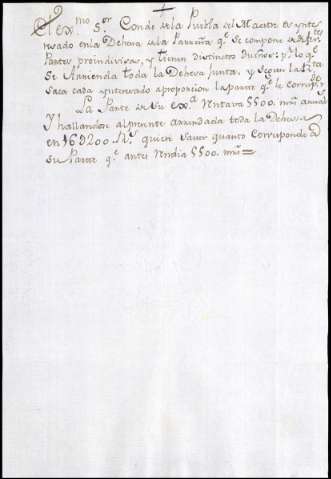 El Ex.mo S.or Conde de la Puebla del Maestre es ynte
resado en la Dehesa de la q.e se compone de
Partes proindivisas, y tienen distintos dueños: p.r lo q.e
se Arrienda toda la Dehesa junta, y segun la
saca cada ynteresado aproporcion la parte q.e le corresp.
La Parte de Su Ex.a Rentava 5500. mrs anuales
Y hallandose alpresente arrendada toda la Dehesa
en 169200. R.s quiere saver quanto corresponde a
su Parte q.e antes Rendia 5500. mrs =